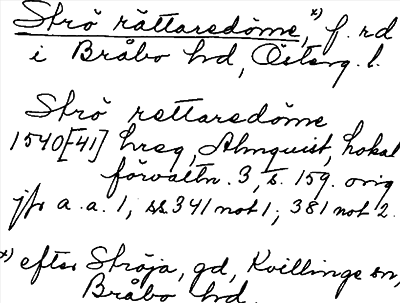 Strö rättaredöme,x) f. rd
i Bråbo hd, Österg. l.
Strö rettaredöme
1540[41] hreg, Almquist, Lokal
förvaltn. 3, s. 159. orig
jfr a. a. 1, ss. 341 not 1; 381 not 2.
x) efter Ströja, gd, Kvillinge sn,
Bråbo hd.